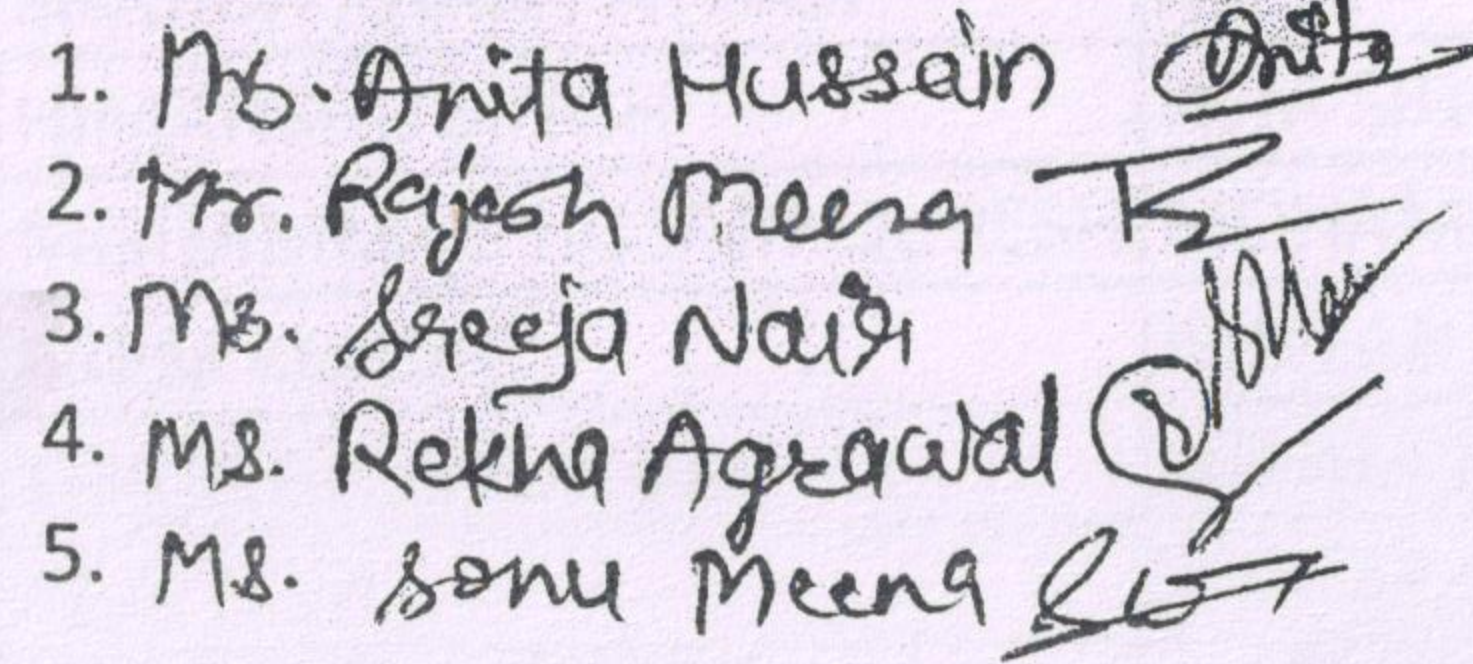 1. Ms. Anita Hussain Anita
2. Mr. Rajesh Meena
3. Ms. Sreeja Nair
4. Ms. Rekha Agrawal
5. Ms. Sonu Meena